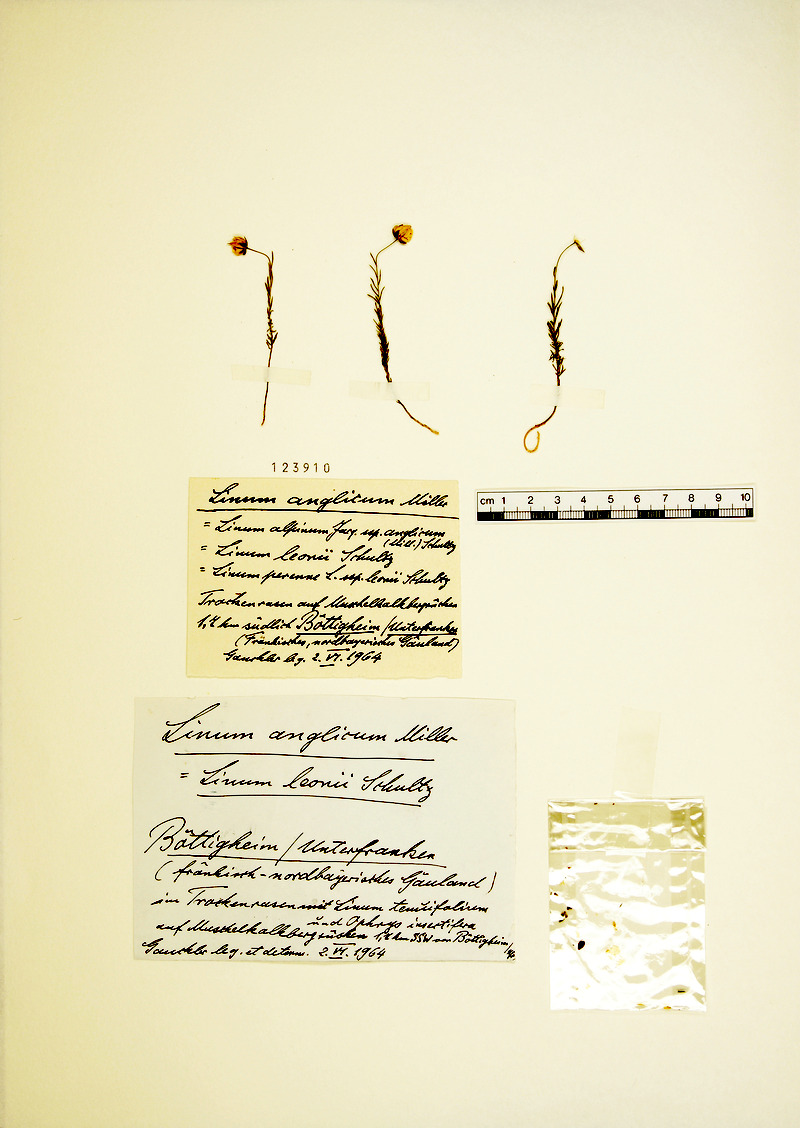 123910
Linum anglicum Miller
= Linum alpinum Jacq. ssp. anglicum
(Mill.) Schultz
= Linum leonii Schultz
= Linum perenne L. ssp. leonii Schultz
Trockenrasen auf Muschelkalkbergrücken
1,4 km südlich Böttigheim/Unterfranken
(Fränkisches, nordbayerisches Gäuland)
Gauckler leg. 2. VI. 1964
cm 1 2 3 4 5 6 7 8 9 10
Linum anglicum Miller
= Linum leonii Schultz
Böttigheim / Unterfranken
(fränkisch-nordbayerisches Gäuland)
im Trockenrasen mit Linum tenuifolium
und Ophrys insectifera
auf Muschelkalkbergrücken 1,4 km SSW von Böttigheim/
Gauckler leg. et determ. 2. VI. 1964